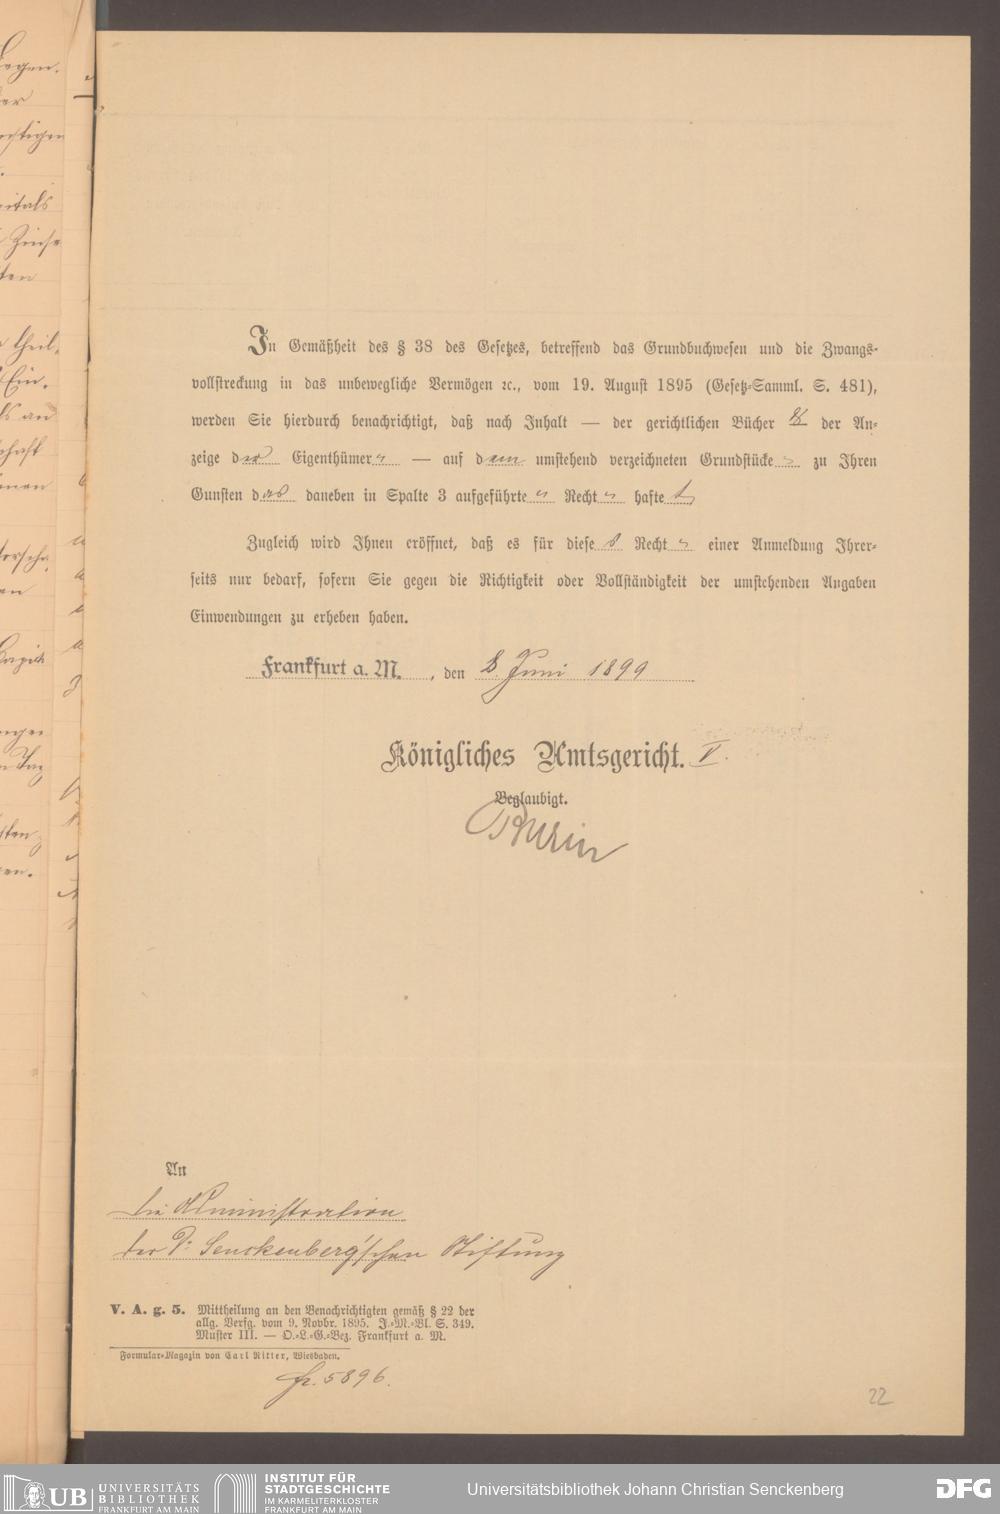 In Gemäßheit des § 38 des Gesetzes, betreffend das Grundbuchwesen und die Zwangs-
vollstreckung in das unbewegliche Vermögen ꝛc., vom 19. August 1895 (Gesetz-Samml. S. 481),
werden Sie hierdurch benachrichtigt, daß nach Inhalt — der gerichtlichen Bücher & der An-
zeige der Eigenthümer — auf dem umstehend verzeichneten Grundstücke zu Ihren
Gunsten das daneben in Spalte 3 aufgeführte Recht haftet
Zugleich wird Ihnen eröffnet, daß es für dieses Recht einer Anmeldung Ihrer-
seits nur bedarf, sofern Sie gegen die Richtigkeit oder Vollständigkeit der umstehenden Angaben
Einwendungen zu erheben haben.
Frankfurt a. M., den 8. Juni 1899
Königliches Amtsgericht. V.
Beglaubigt.
An
die Administration
der Dr. Senckenberg'schen Stiftung
V. A. g. 5. Mittheilung an den Benachrichtigten gemäß § 22 der
allg. Verfg. vom 9. Novbr. 1895. J.-M.-Bl. S. 349.
Muster III. — O.-L.-G.-Bez. Frankfurt a. M.
Formular-Magazin von Carl Ritter, Wiesbaden.
5896.
22
UB UNIVERSITÄTS
BIBLIOTHEK
FRANKFURT AM MAIN
INSTITUT FÜR
STADTGESCHICHTE
IM KARMELITERKLOSTER
FRANKFURT AM MAIN
Universitätsbibliothek Johann Christian Senckenberg
DFG